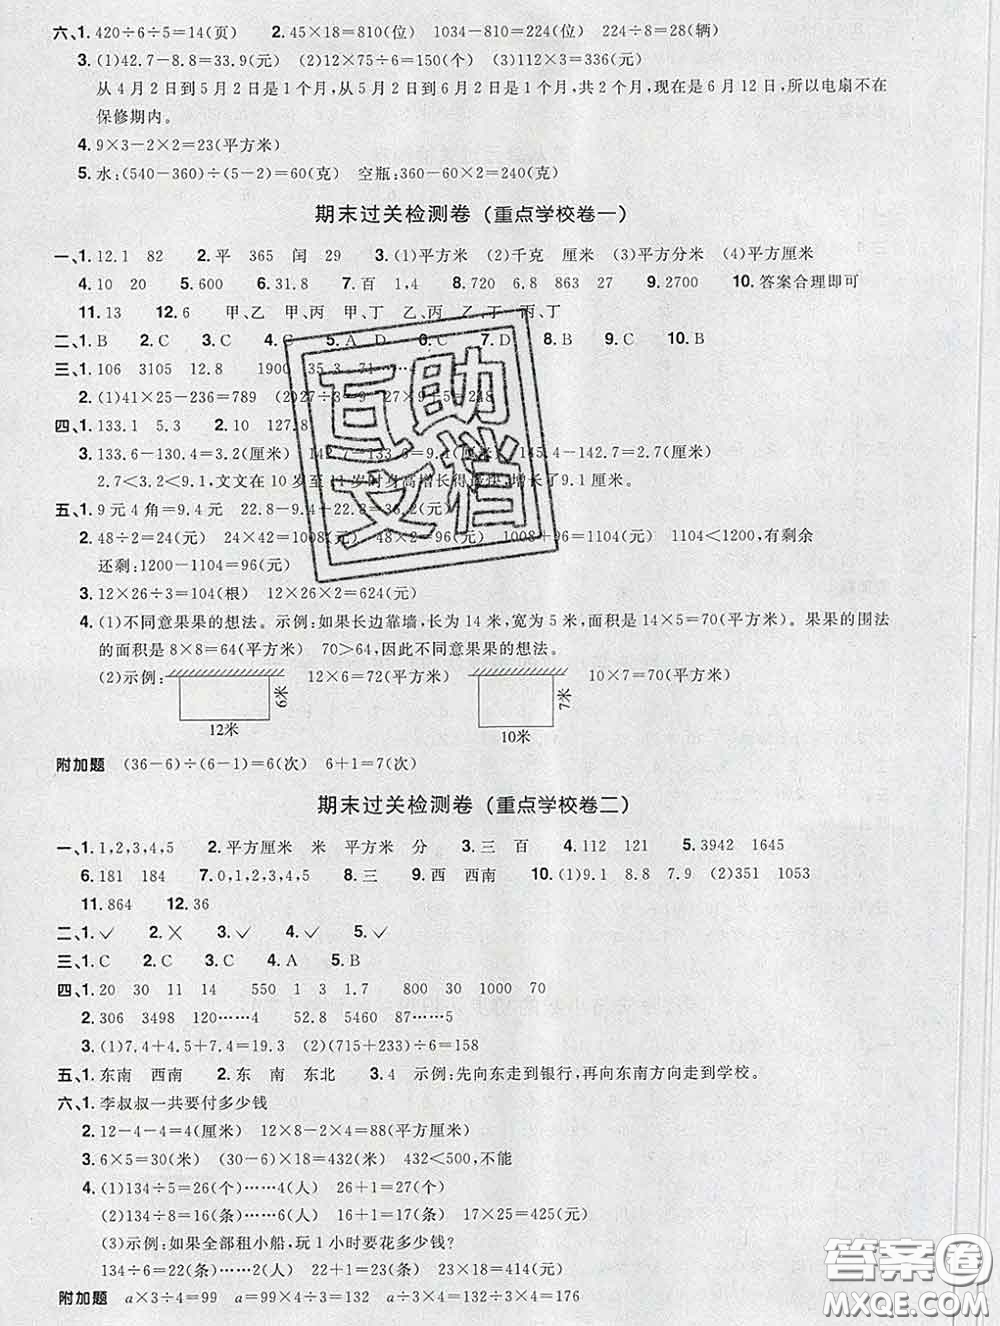 六、1. 420÷6÷5=14(页) 2. 45×18=810(位) 1034-810=224(位) 224÷8=28(辆)
3. (1)42.7-8.8=33.9(元) (2)12×75÷6=150(个) (3)112×3=336(元)
从4月2日到5月2日是1个月,从5月2日到6月2日是1个月,共2个月,现在是6月12日,所以电扇不在
保修期内。
4. 9×3-2×2=23(平方米)
5. 水:(540-360)÷(5-2)=60(克) 空瓶:360-60×2=240(克)
期末过关检测卷(重点学校卷一)
一、1. 12.1 82 2. 平 365 闰 29 3. (1)平方米 (2)千克 厘米 (3)平方分米 (4)平方厘米
4. 10 20 5. 600 6. 31.8 7. 百 1,4 8. 720 6.8 863 27 9. 2700 10. 答案合理即可
11. 13 12. 6 甲、乙 甲、丙 甲、丁 乙、丙 乙、丁 丙、丁
二、1. B 2. C 3. C 4. C 5. A D 6. C 7. D 8. B 9. C 10. B
三、1. 106 3105 12.8 1900 35.3 71……
2. (1)41×25-236=789 (2)27÷3=9 27×9+5=248
四、1. 133.1 5.3 2. 10 127.8
3. 133.6-130.4=3.2(厘米) 142.7-133.6=9.1(厘米) 145.4-142.7=2.7(厘米)
2.7<3.2<9.1,文文在10岁至11岁时身高增长得最快,增长了9.1厘米。
五、1. 9元4角=9.4元 22.8-9.4+22.8=36.2(元)
2. 48÷2=24(元) 24×42=1008(元) 48×2=96(元) 1008+96=1104(元) 1104<1200,有剩余
还剩:1200-1104=96(元)
3. 12×26÷3=104(根) 12×26×2=624(元)
4. (1)不同意果果的想法。示例:如果长边靠墙,长为14米,宽为5米,面积是14×5=70(平方米)。果果的围法
的面积是8×8=64(平方米) 70>64,因此不同意果果的想法。
(2)示例: 12×6=72(平方米) 10×7=70(平方米)
6米
12米
7米
10米
附加题 (36-6)÷(6-1)=6(次) 6+1=7(次)
期末过关检测卷(重点学校卷二)
一、1. 1,2,3,4,5 2. 平方厘米 米 平方米 分 3. 三 百 4. 112 121 5. 3942 1645
6. 181 184 7. 0,1,2,3,4,5 8. 三 9. 西 西南 10. (1)9.1 8.8 7.9 (2)351 1053
11. 864 12. 36
二、1. ✓ 2. × 3. ✓ 4. ✓ 5. ✓
三、1. C 2. C 3. C 4. A 5. B
四、1. 20 30 11 14 550 1 3 1.7 800 30 1000 70
2. 306 3498 120……4 52.8 5460 87……5
3. (1)7.4+4.5+7.4=19.3 (2)(715+233)÷6=158
五、1. 东南 西南 2. 东 南 东北 3. 4 示例:先向东走到银行,再向东南方向走到学校。
六、1. 李叔叔一共要付多少钱
2. 12-4-4=4(厘米) 12×8-2×4=88(平方厘米)
3. 6×5=30(米) (30-6)×18=432(平方米) 432<500,不能
4. (1)134÷5=26(个)……4(人) 26+1=27(个)
(2)134÷8=16(条)……6(人) 16+1=17(条) 17×25=425(元)
(3)示例:如果全部租小船,玩1小时要花多少钱?
134÷6=22(条)……2(人) 22+1=23(条) 23×18=414(元)
附加题 a×3÷4=99 a=99×4÷3=132 a÷3×4=132÷3×4=176
互助
文档
答案圈
MXQE.COM